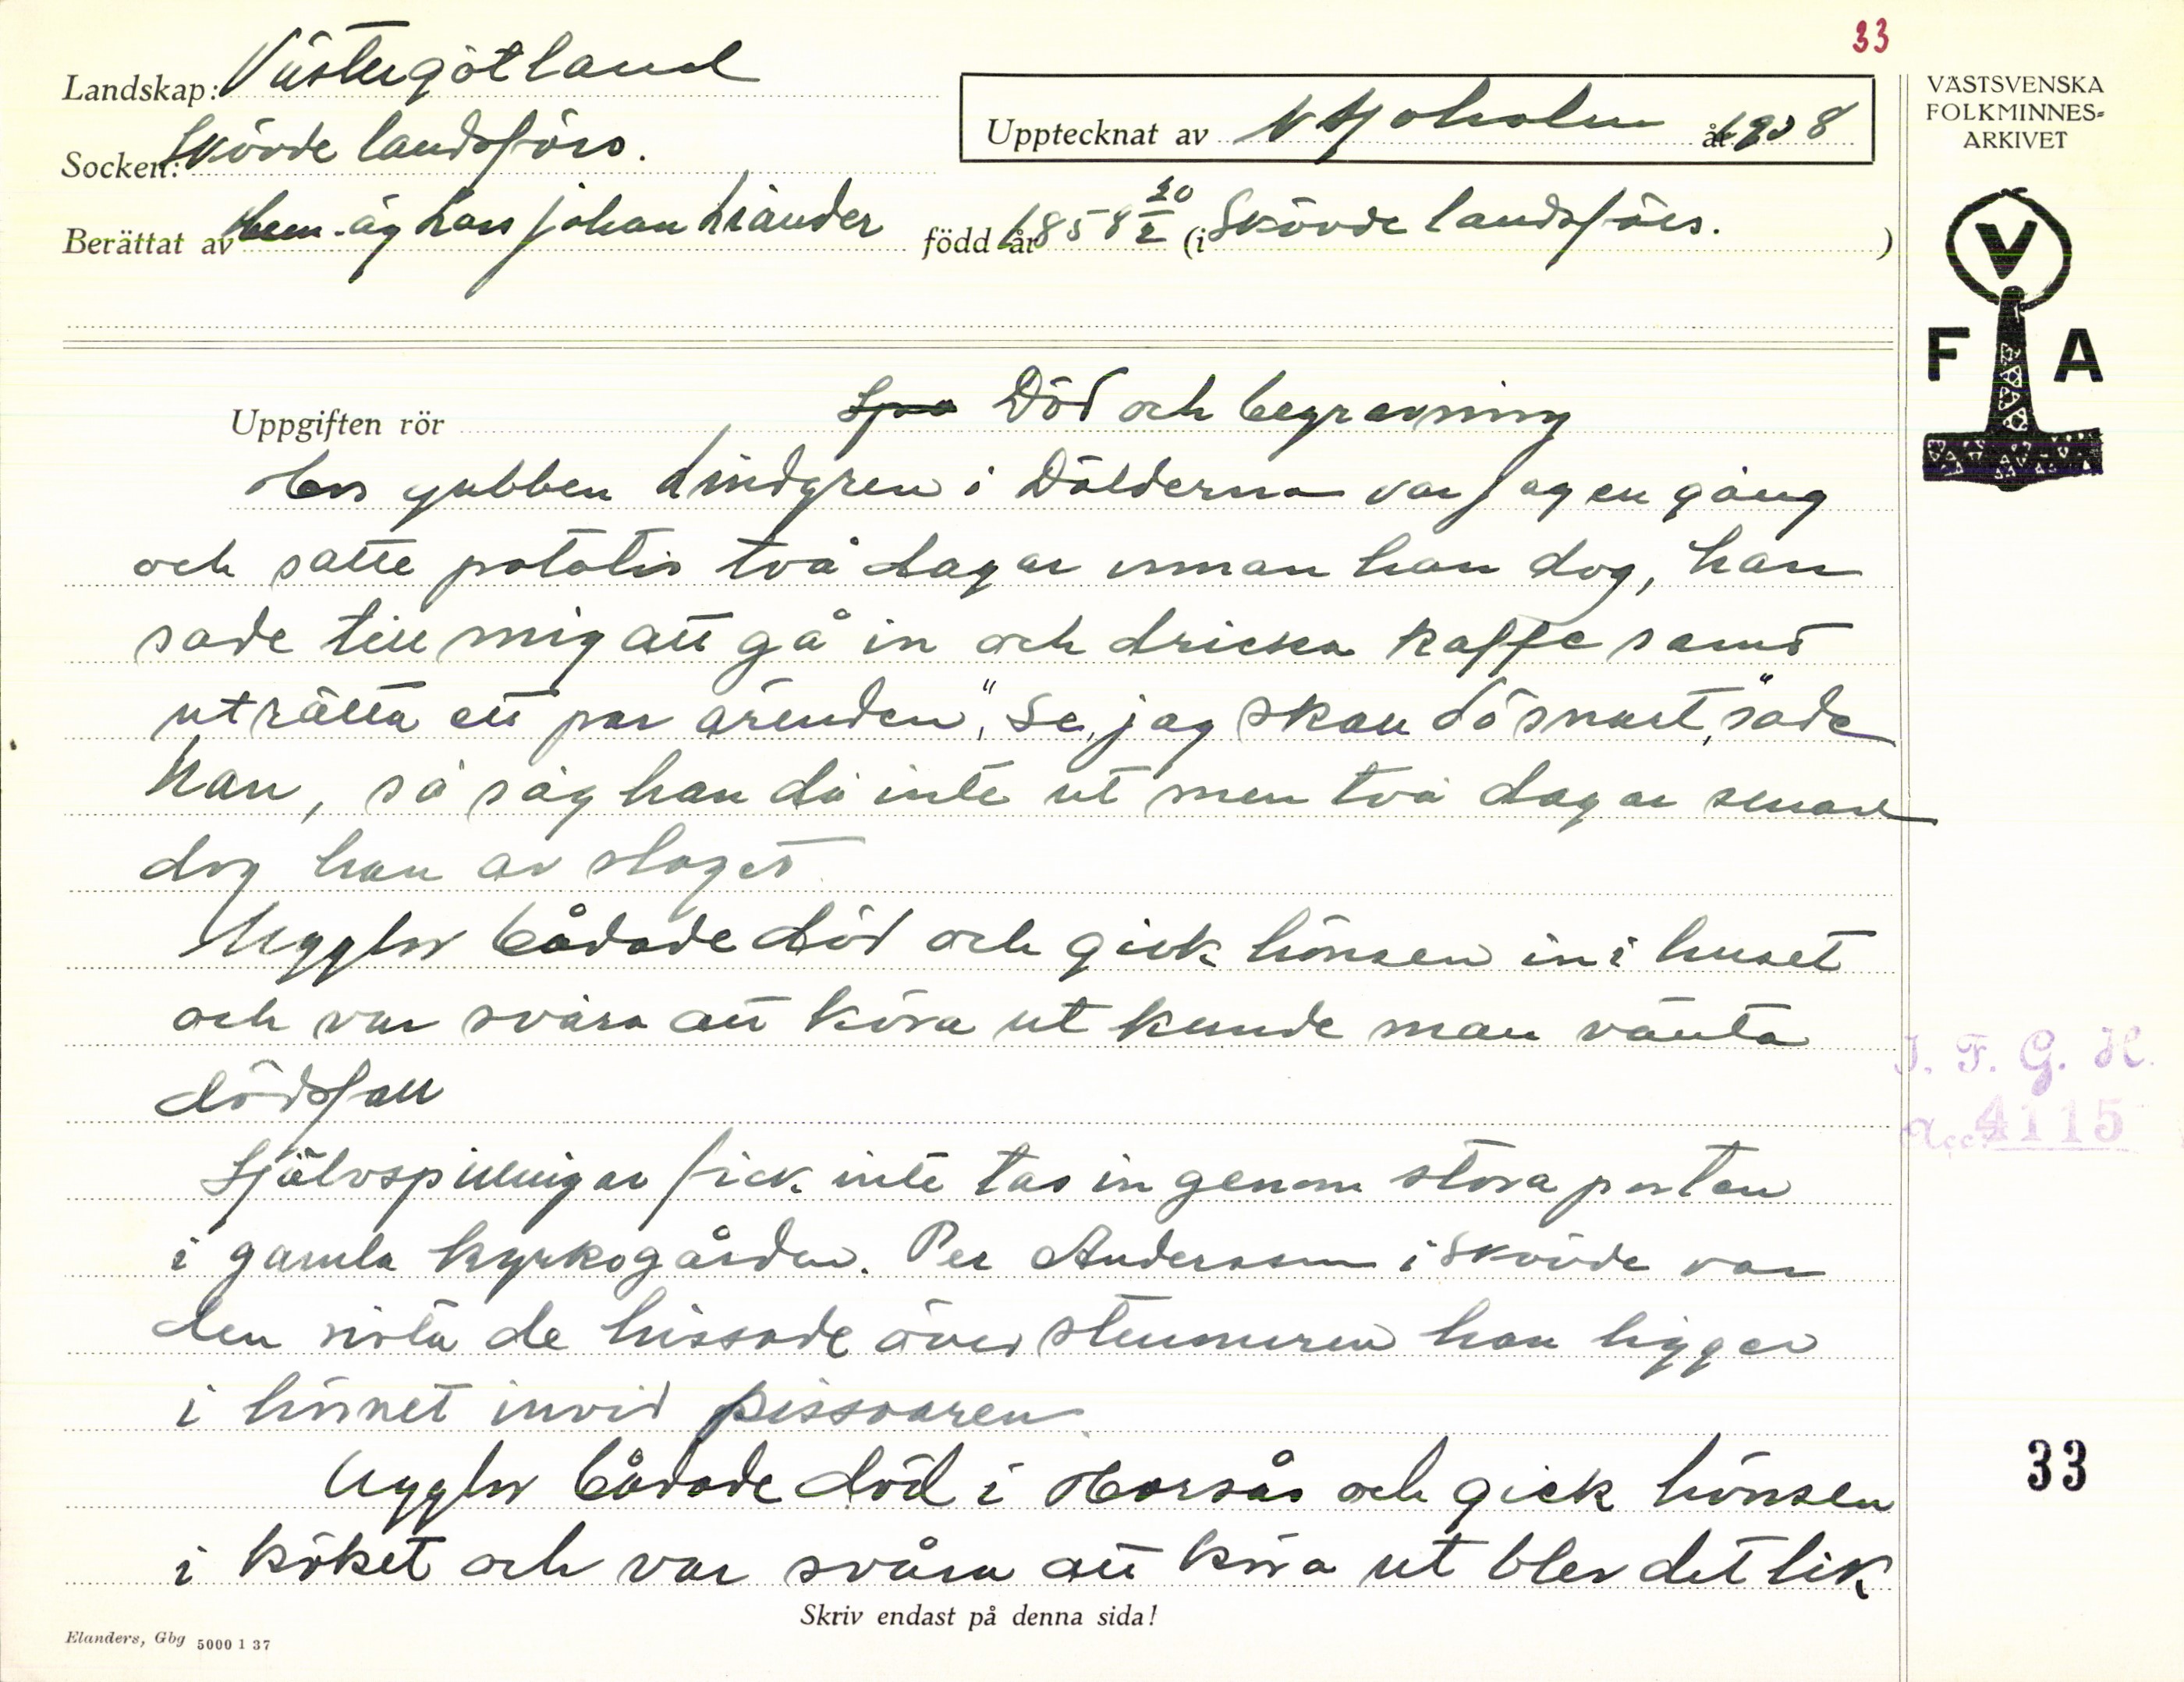 33
Landskap: Västergötland
VÄSTSVENSKA
FOLKMINNES=
ARKIVET
Upptecknat av år 1938
Socken: Skövde landsförs.
Berättat av Hem.äg Lars Johan Liander född år 1858 20/2 (i Skövde landsförs. )
V
F A
Uppgiften rör Död och begravning
Hos gubben Lindgren i Dälderna var jag en gång
och satte potatis två dagar innan han dog, han
sade till mig att gå in och dricka kaffe samt
uträtta ett par ärenden, "Se, jag skall dö snart," sade
han, så såg han då inte ut men två dagar senare
dog han av slaget
Ugglor bådade död och gick hönsen in i huset
och var svåra att köra ut kunde man vänta
dödsfall
I. F. G. H.
Acc. 4115
Självspillningar fick inte tas in genom stora porten
i gamla kyrkogården. Per Andersson i Skövde var
den sista de hissade över stenmuren han ligger
i hörnet invid pissoaren
Ugglor bådade död i Horsås och gick hönsen
33
i köket och var svåra att köra ut blev det lik
Skriv endast på denna sida!
Elanders, Gbg 5000 1 37